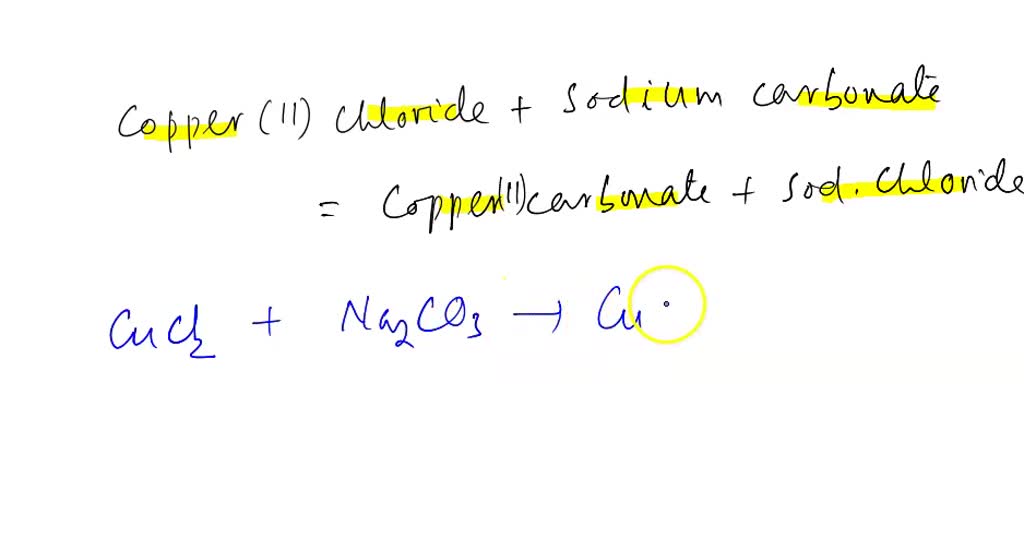 Copper (II) chloride + sodium carbonate
= Copper(II) carbonate + sod. chloride
CuCl2 + Na2CO3 → Cu